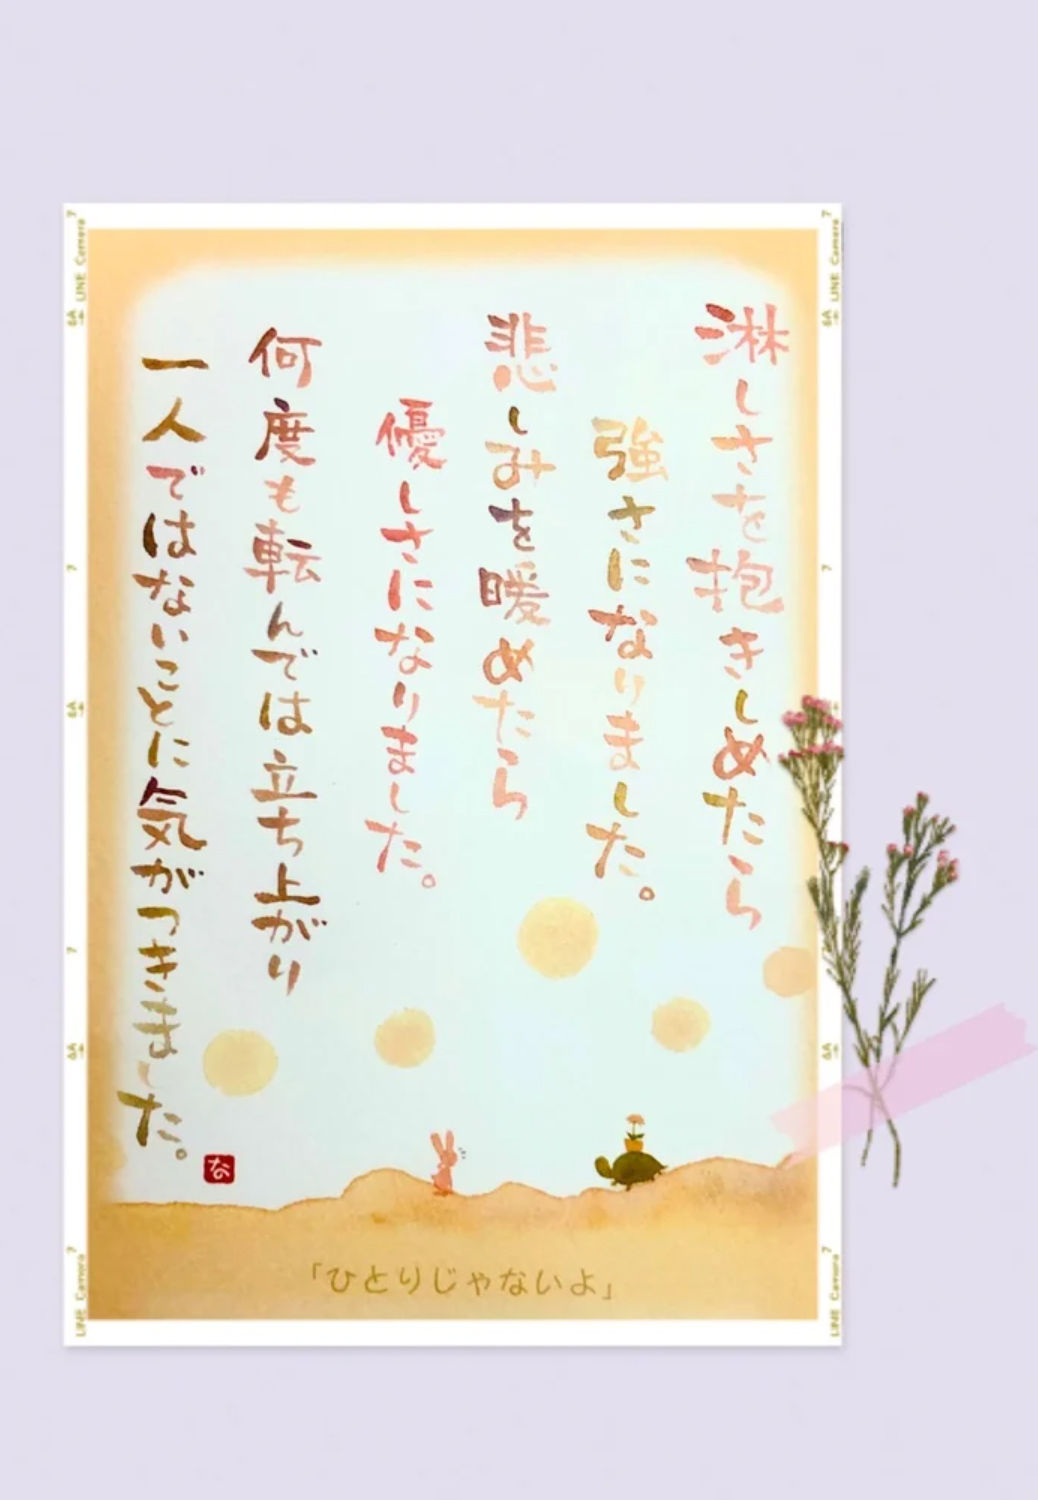 淋しさを抱きしめたら
強さになりました。
悲しみを暖めたら
優しさになりました。
何度も転んでは立ち上がり
一人ではないことに気がつきました。
な
「ひとりじゃないよ」
LINE Camera
7
6A
7
6A
7
6A
LINE Camera
7
LINE Camera
7
6A
7
6A
7
6A
LINE Camera
7